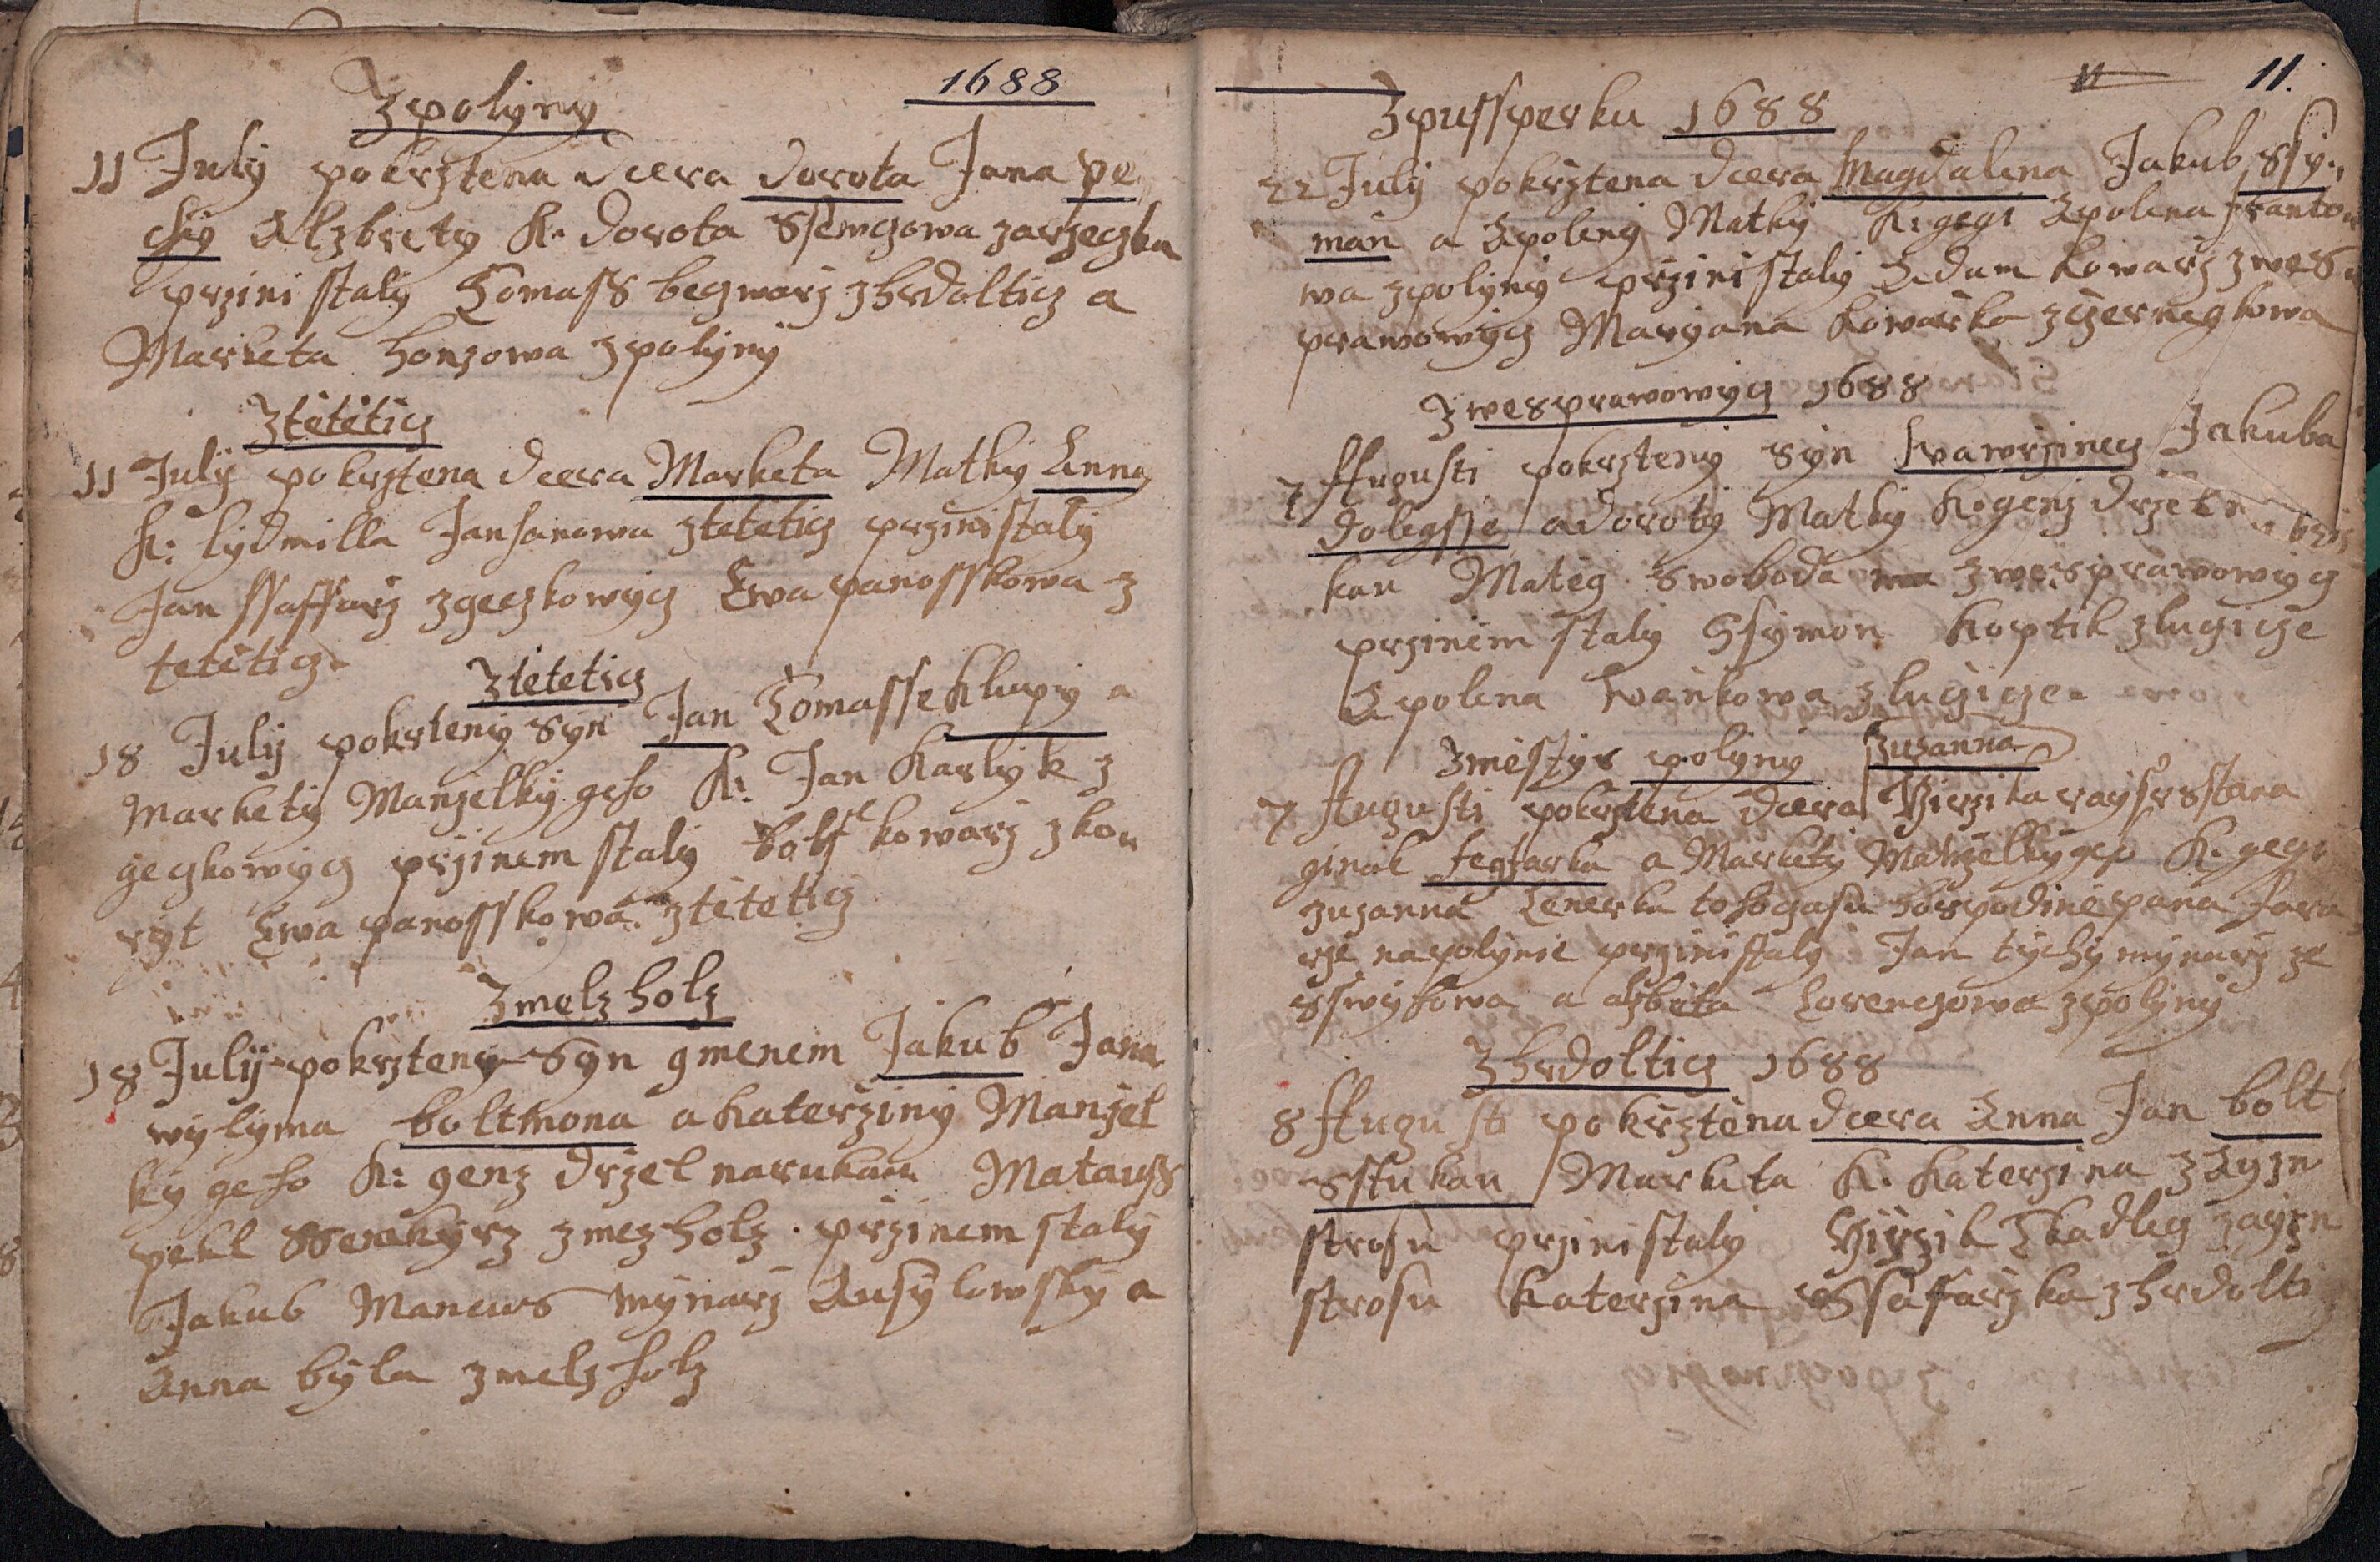 1688
Zpolyny
11 July pokrztena dcera dorota Jana pe
chy Alzbiety K. dorota Ssewczowa zarzeczka
przini staly Tomass begwarz zhrdolticz a
Marketa honzowa zpolyny
Ztetiticz
11 July pokrztena dcera Marketa Matky Anny
K: lydmilla Janhanowa zteteticz przinistaly
Jan ssaffarz zgeczkowycz Ewa panosskowa z
tetiticz
Zteteticz
18 July pokrteny syn Jan Tomasse Klupy a
Markety Manzelky geho K: Jan Karlyk z
geczkowycz przinem staly kowarz zkou
ryt Ewa panosskowa zteteticz
Zmelzholz
18 July pokrzteny syn gmenem Jakub Jana
wylyma boltmona a Katerziny Manzel
ky geho K: genz drzel narukau Matauss
pekl zmezholz. przinem staly
Jakub Mancus mynarz Ausylowsky a
Anna byla zmelzholz
11.
Zpussperku 1688
22 July pokrztena dcera Magdalena Jakub Ssy
man a Apoleny Matky K: gegi Apolena frantow
wa zpolyny przini staly Adam Kowarz zwes
prawowycz Maryana Kowarka zczerneghowa
Zwesprawowycz 1688
7 Augusti pokrzteny syn Wawrzinecz Jakuba
dolegsse a doroty Matky K. genz drzel
kau Mateg Swoboda zwesprawowycz
przinem staly Ssymon Koptik zlugicze
Apolena wankowa zlugicze
Zmestys polyny Zuzanna
7 Augusti pokrztena dcera Girzika
ginak fegfarka a Markety Manzelky geho K. gegi
zuzanna tohogasu hospodine pana fara
rze napolynie przinistaly Jan tychy mynarz ze
Sswyhowa a alzbeta Lorenczowa zpolyny
Zhrdolticz 1688
8 Augusti pokrztena dcera Anna Jan bolt
sstukau Marketa K. Katerzina zayzn
strosu przinistaly Girzik Tkadlcz zayzn
strosu Katerzina Ssafarzka zhrdolti